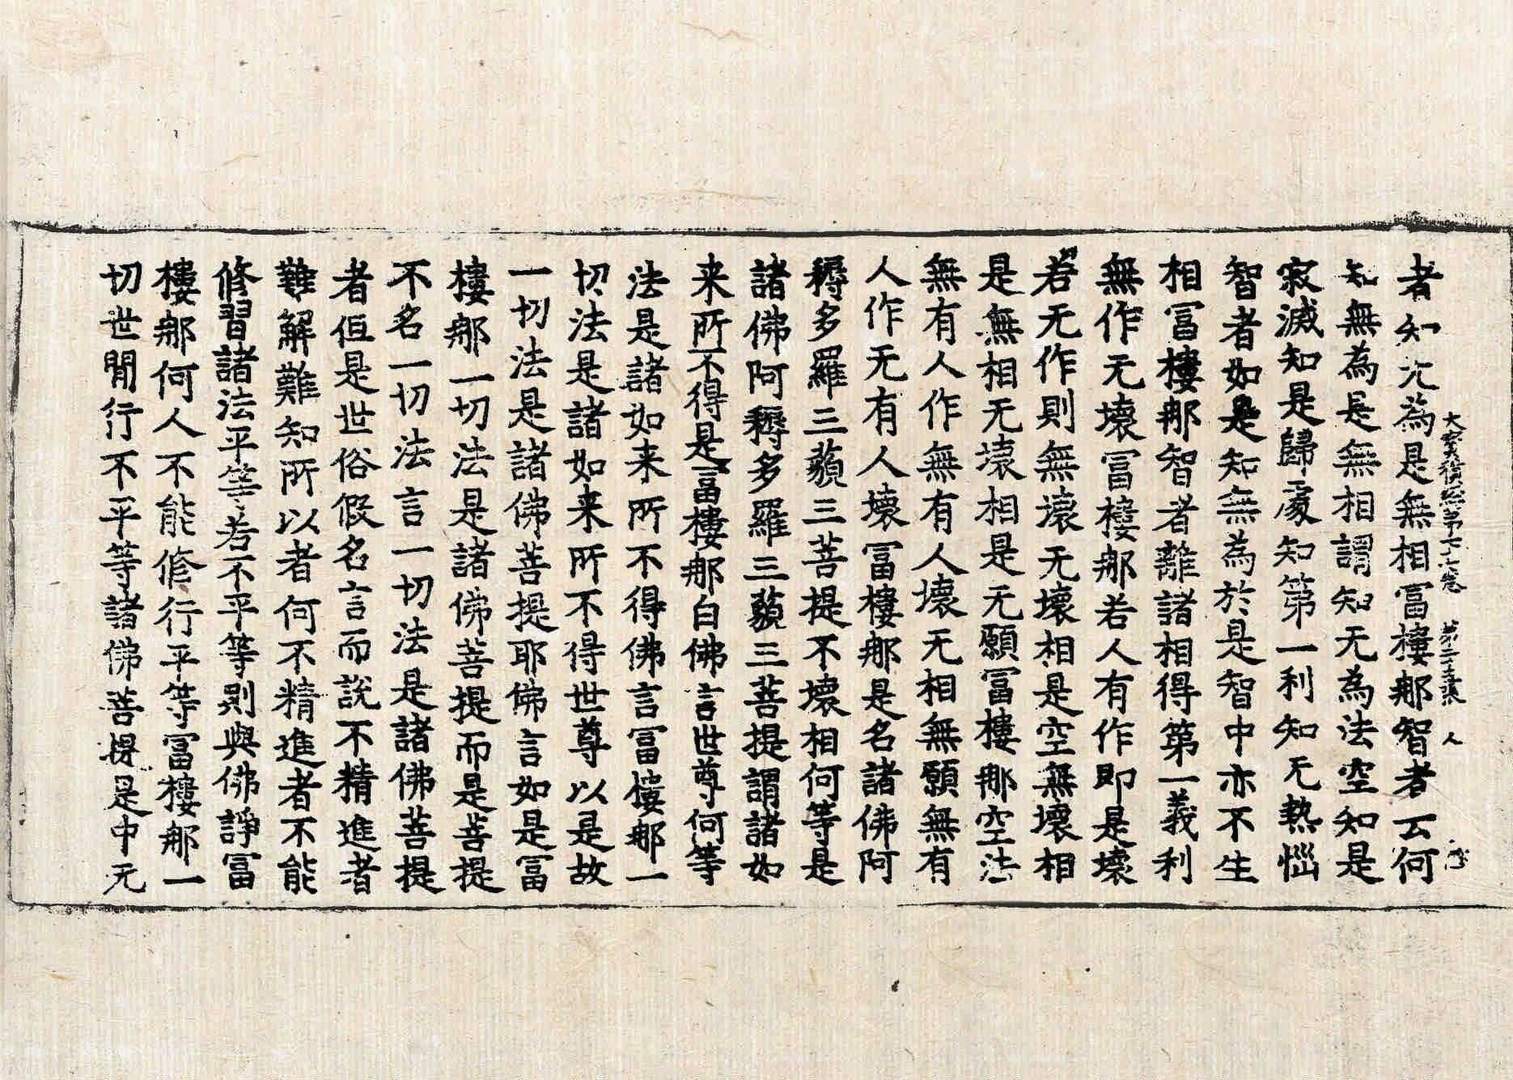 大寶積經第七十七卷 人
者知次為是無相冨樓那智者云何
知無為是無相謂知无為法空知是
寂滅知是歸處知第一利知无熱惱
智者如是知無為於是智中亦不生
相冨樓那智者離諸相得第一義利
無作无壞冨樓那若人有作即是壞
若无作則無壞无壞相是空無壞相
是無相无壞相是无願冨樓那空法
無有人作無有人壞无相無願無有
人作无有人壞冨樓那是名諸佛阿
耨多羅三藐三菩提不壞相何等是
諸佛阿耨多羅三藐三菩提謂諸如
来所不得是冨樓那白佛言世尊何等
法是諸如来所不得佛言冨樓那一
切法是諸如来所不得世尊以是故
一切法是諸佛菩提耶佛言如是冨
樓那一切法是諸佛菩提而是菩提
不名一切法言一切法是諸佛菩提
者但是世俗假名言而說不精進者
難解難知所以者何不精進者不能
修習諸法平等若不平等則與佛諍冨
樓那何人不能修行平等冨樓那一
切世間行不平等諸佛菩提是中无